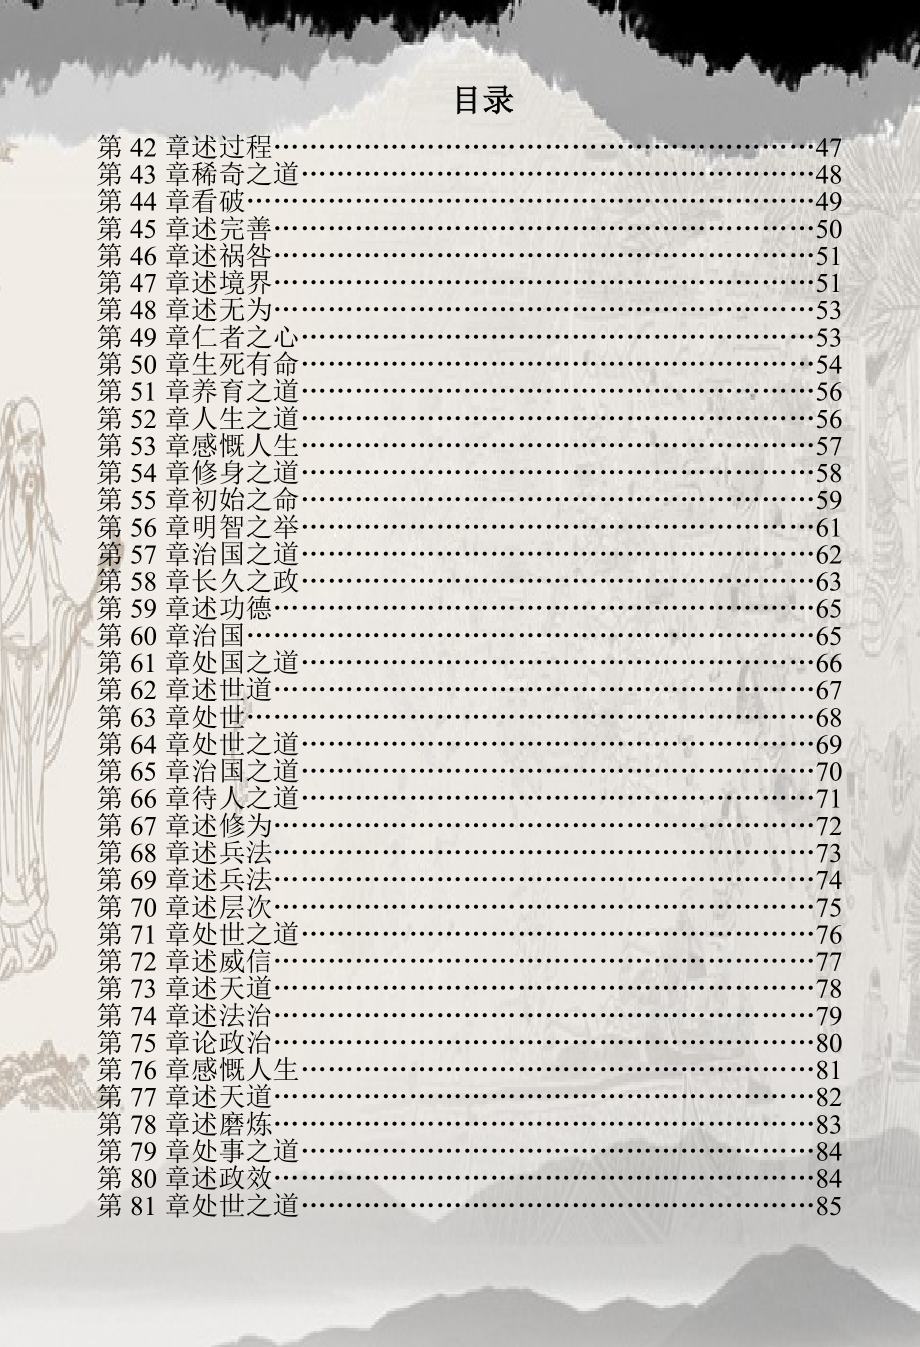 目录
第 42 章述过程……………………………………………………47
第 43 章稀奇之道…………………………………………………48
第 44 章看破………………………………………………………49
第 45 章述完善……………………………………………………50
第 46 章述祸咎……………………………………………………51
第 47 章述境界……………………………………………………51
第 48 章述无为……………………………………………………53
第 49 章仁者之心…………………………………………………53
第 50 章生死有命…………………………………………………54
第 51 章养育之道…………………………………………………56
第 52 章人生之道…………………………………………………56
第 53 章感慨人生…………………………………………………57
第 54 章修身之道…………………………………………………58
第 55 章初始之命…………………………………………………59
第 56 章明智之举…………………………………………………61
第 57 章治国之道…………………………………………………62
第 58 章长久之政…………………………………………………63
第 59 章述功德……………………………………………………65
第 60 章治国………………………………………………………65
第 61 章处国之道…………………………………………………66
第 62 章述世道……………………………………………………67
第 63 章处世………………………………………………………68
第 64 章处世之道…………………………………………………69
第 65 章治国之道…………………………………………………70
第 66 章待人之道…………………………………………………71
第 67 章述修为……………………………………………………72
第 68 章述兵法……………………………………………………73
第 69 章述兵法……………………………………………………74
第 70 章述层次……………………………………………………75
第 71 章处世之道…………………………………………………76
第 72 章述威信……………………………………………………77
第 73 章述天道……………………………………………………78
第 74 章述法治……………………………………………………79
第 75 章论政治……………………………………………………80
第 76 章感慨人生…………………………………………………81
第 77 章述天道……………………………………………………82
第 78 章述磨炼……………………………………………………83
第 79 章处事之道…………………………………………………84
第 80 章述政效……………………………………………………84
第 81 章处世之道…………………………………………………85